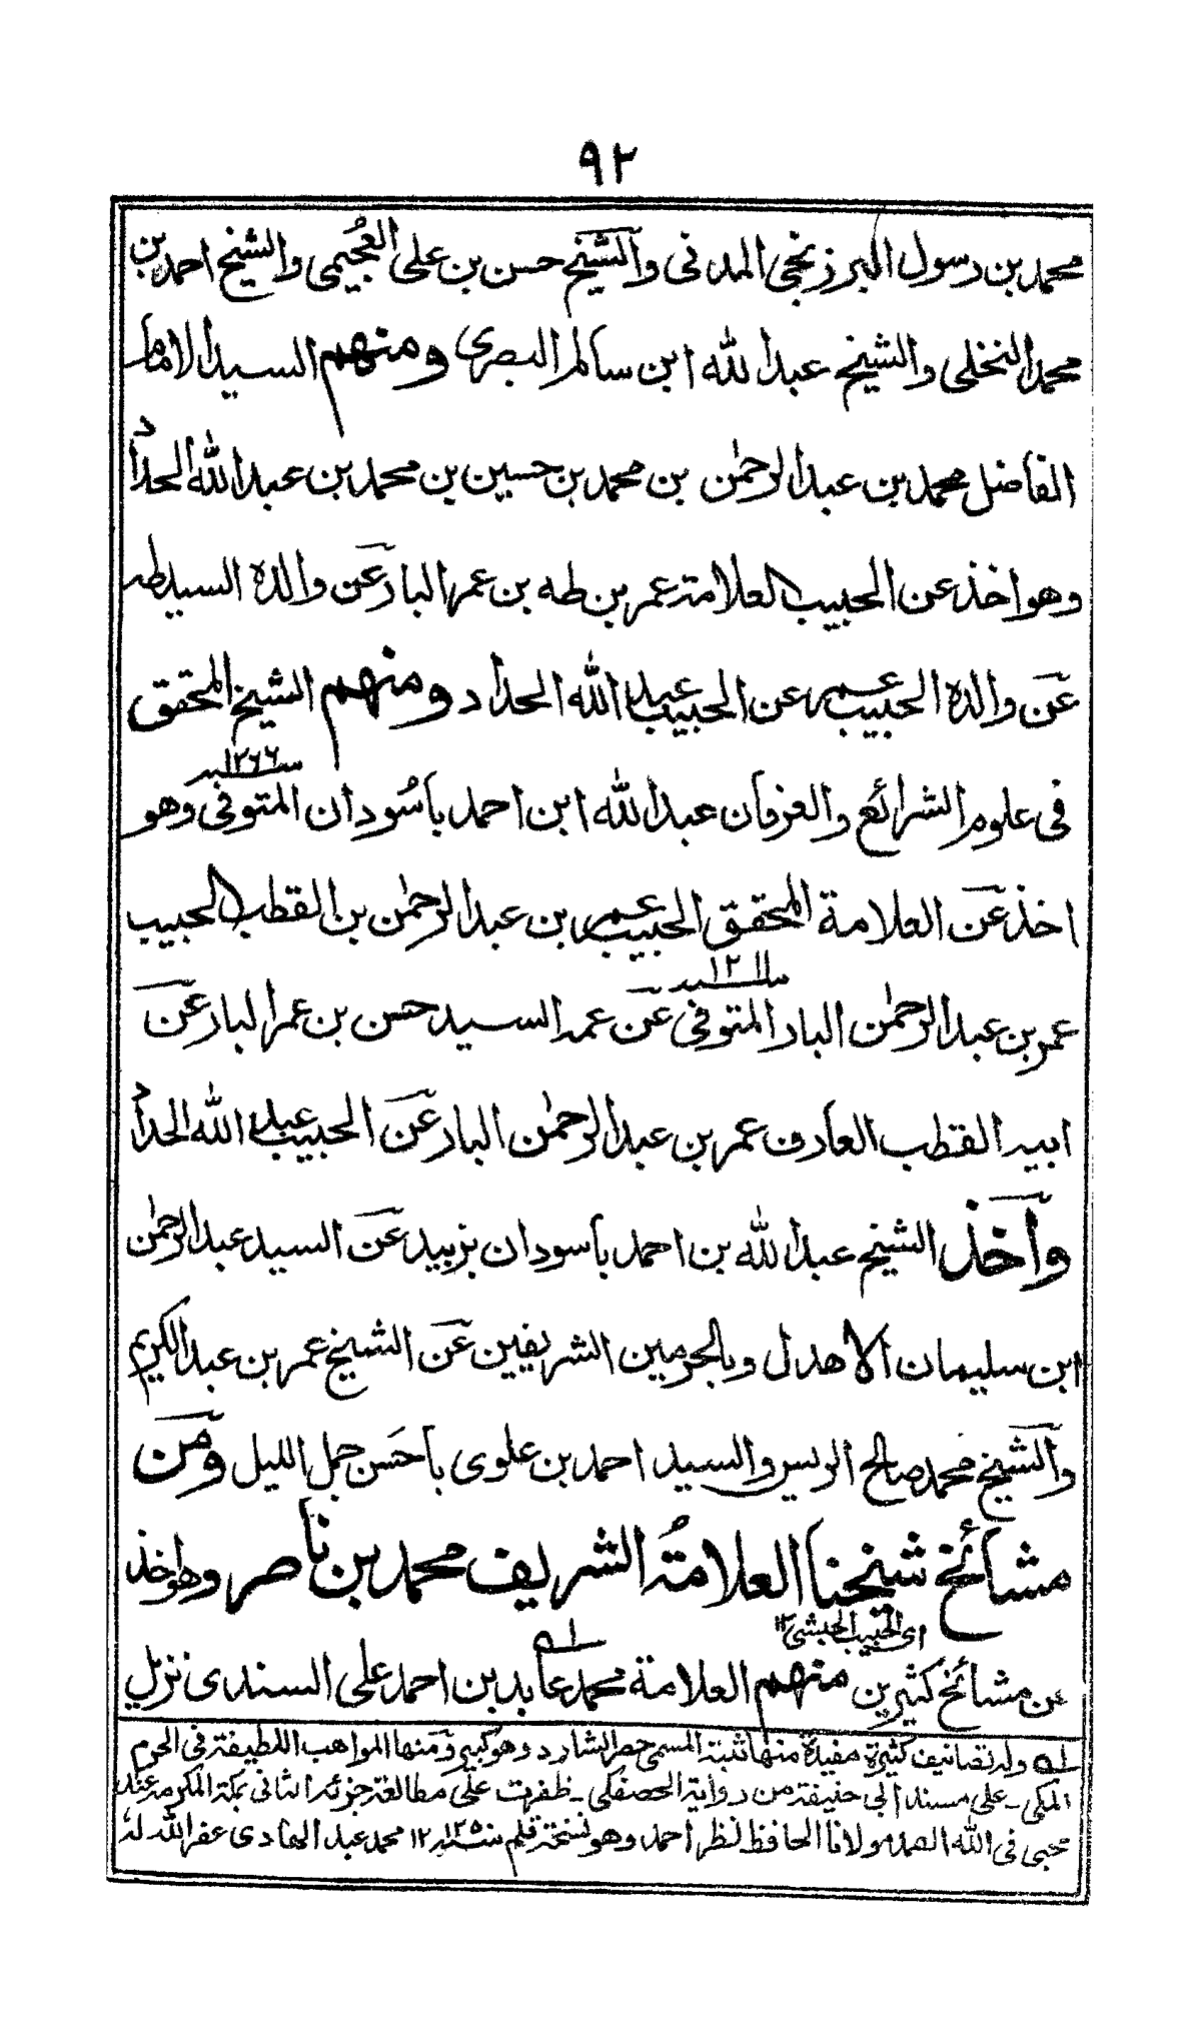 ٩٢
محمد بن رسول البرزنجي المدنى والشيخ حسن بن على العُجيمى والشيخ احمد بن
محمد النخلى والشيخ عبد الله ابن سالم البصرى ومنهم السيد الامام
الفاضل محمد بن عبد الرحمٰن بن محمد بن حسين بن محمد بن عبد الله الحداد
وهو اخذ عن الحبيب العلامة عمر بن طه بن عمر البار عن والده السيد طه
عن والده الحبيب عمر عن الحبيب عبد الله الحداد ومنهم الشيخ المحقق
سنة ١٢٦٦
فى علوم الشرائع والعرفان عبد الله ابن احمد باسُودان المتوفى وهو
اخذ عن العلامة المحقق الحبيب عمر بن عبد الرحمٰن بن القطب الحبيب
سنة ١٢١١
عمر بن عبد الرحمٰن البار المتوفى عن عمه السيد حسن بن عمر البار عن
ابيه القطب العارف عمر بن عبد الرحمٰن البار عن الحبيب عبد الله الحداد
واخذ الشيخ عبد الله بن احمد باسودان بزبيد عن السيد عبد الرحمٰن
ابن سليمان الاهدل وبالحرمين الشريفين عن الشيخ عمر بن عبد الكريم
والشيخ محمد صالح الريس والسيد احمد بن علوى باحَسن جمل الليل ومن
مشائخ شيخنا العلامةُ الشريف محمد بن ناصر وهو اخذ
اى الحبيب الحبشى ١٢
عن مشائخ كثيرين منهم العلامة محمد عابد بن احمد على السندى نزيل
له وله تصانيف كثيرة مفيدة منها ثبته المسمى حصر الشارد وهو كبير ومنها المواهب اللطيفة فى الحرم
المكى على مسند ابى حنيفة من رواية الحصفكى ـ ظفرت على مطالعة جزئه الثانى بمكة المكرمة عند
محبى فى الله الصمد مولانا الحافظ نظر احمد وهو نسخة قلم ١٢ محمد عبد الهادى غفر الله له